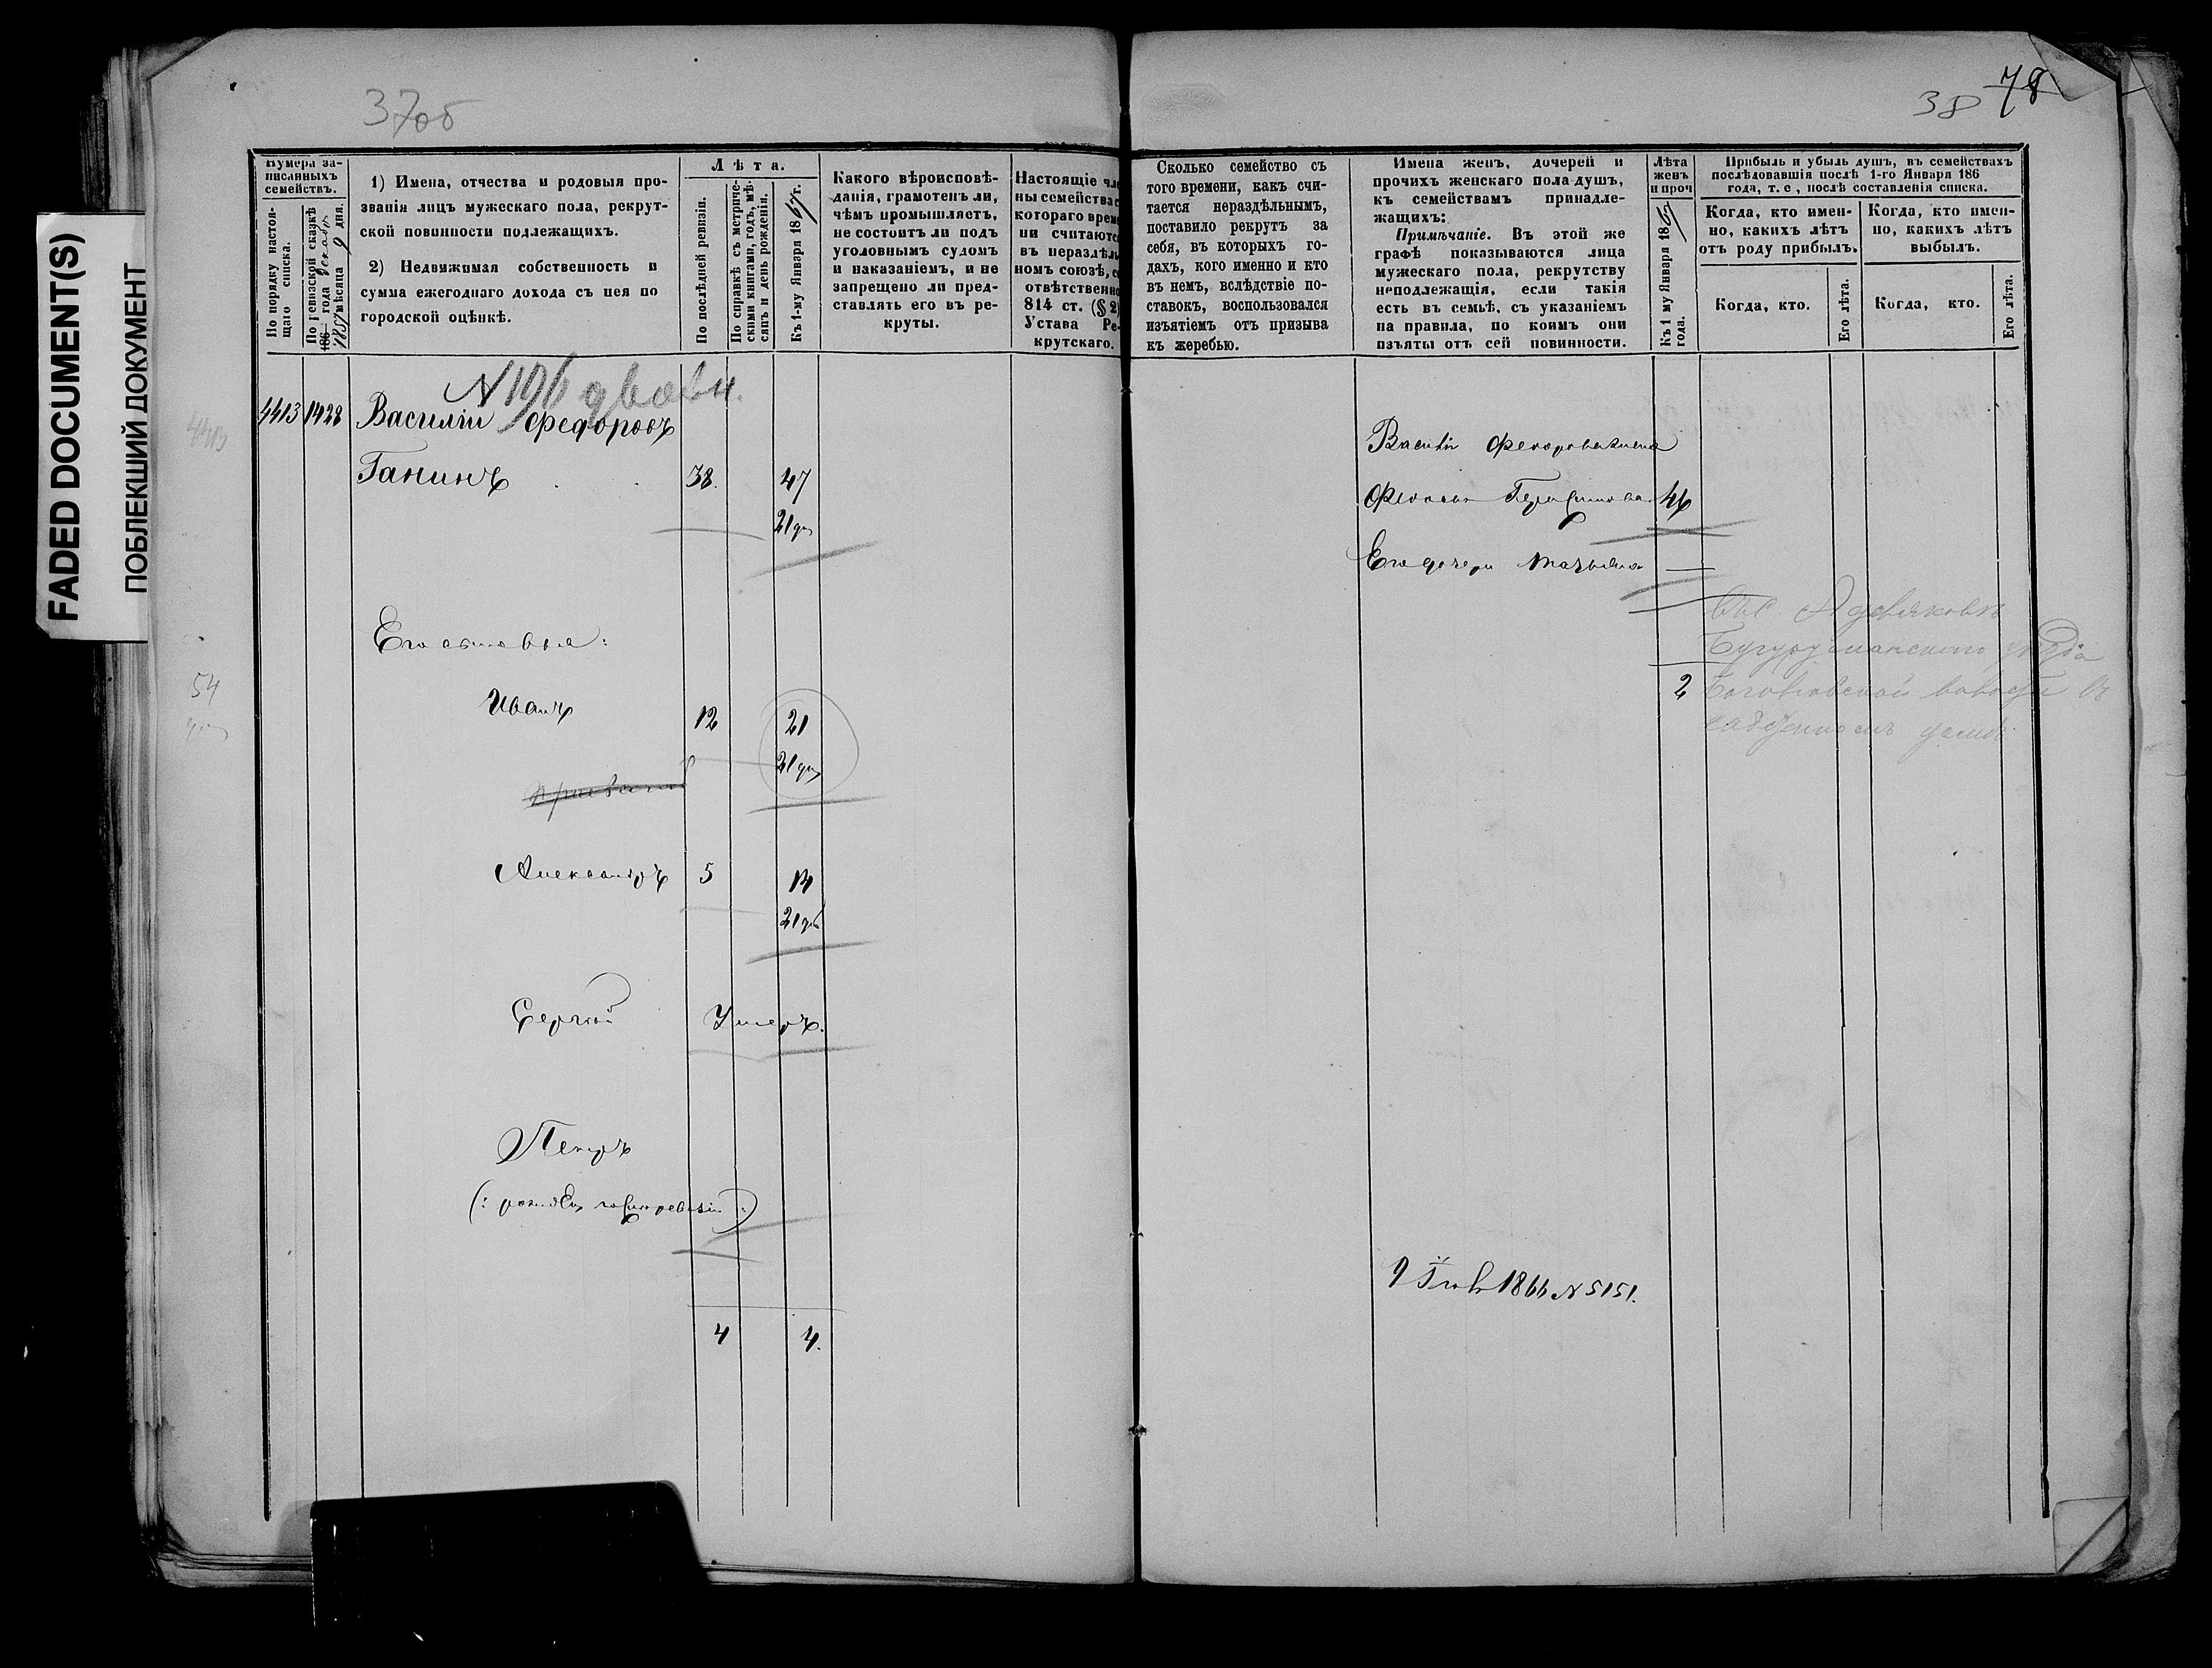 FADED DOCUMENT(S)
ПОБЛЕКШИЙ ДОКУМЕНТ
37об
38 78
Нумера за-
писанныхъ
семействъ.
По порядку настоя-
щаго списка.
По ревизской сказкѣ
186 года декабр
1857 мѣсяца 9 дня.
1) Имена, отчества и родовыя про-
званія лицъ мужескаго пола, рекрут-
ской повинности подлежащихъ.
2) Недвижимая собственность и
сумма ежегоднаго дохода съ нея по
городской оцѣнкѣ.
Лѣта.
По послѣдней ревизіи.
По справкѣ съ метриче-
скими книгами, годъ, мѣ-
сяцъ и день рожденія.
Къ 1-му Января 1867 г.
Какого вѣроисповѣ-
данія, грамотенъ ли,
чѣмъ промышляетъ,
не состоитъ ли подъ
уголовнымъ судомъ
и наказаніемъ, и не
запрещено ли пред-
ставлять его въ ре-
круты.
Настоящіе чле
ны семейства с
котораго врем
ни считаютс
въ нераздѣль
номъ союзѣ, с
отвѣтственно
814 ст. (§ 2)
Устава Ре-
крутскаго.
Сколько семейство съ
того времени, какъ счи-
тается нераздѣльнымъ,
поставило рекрутъ за
себя, въ которыхъ го-
дахъ, кого именно и кто
въ немъ, вслѣдствіе по-
ставокъ, воспользовался
изъятіемъ отъ призыва
къ жеребью.
Имена женъ, дочерей и
прочихъ женскаго пола душъ,
къ семействамъ принадле-
жащихъ:
Примѣчаніе. Въ этой же
графѣ показываются лица
мужескаго пола, рекрутству
неподлежащія, если такія
есть въ семьѣ, съ указаніемъ
на правила, по коимъ они
изъяты отъ сей повинности.
Лѣта
женъ
и проч
Къ 1 му Января 1867
года.
Прибыль и убыль душъ, въ семействахъ
послѣдовавшія послѣ 1-го Января 186
года, т. е., послѣ составленія списка.
Когда, кто имен-
но, какихъ лѣтъ
отъ роду прибылъ.
Когда, кто имен-
но, какихъ лѣтъ
выбылъ.
Когда, кто.
Его лѣта.
Когда, кто.
Его лѣта.
N 196
4413 1428 Василій Федоровъ
4413
Ганинъ 38. 47
21 дн
Его сыновья:
54
Иванъ 12 21
21 дн
Александръ 5 14
21 дн
Сергѣй Умеръ.
Петръ
(: рожден после ревизіи :)
4 4.
Василія Федорова жена
Федосья Герасимова 46
Его дочери Татьяна —
2
Бугурусланскаго уѣзда
волости въ
домѣ
9 1866 N 5151.